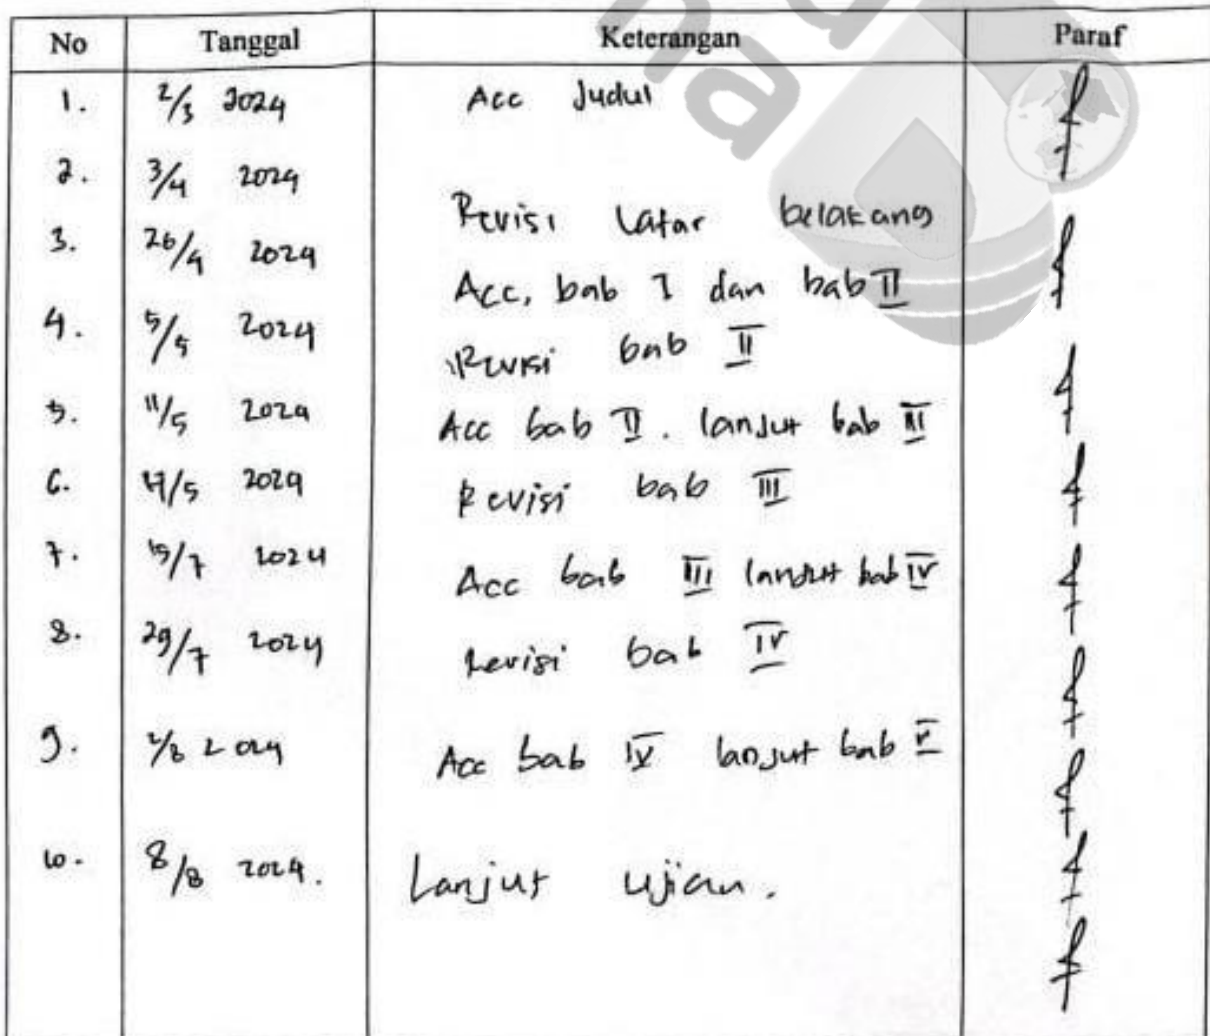 No Tanggal Keterangan Paraf
1. 2/3 2024 Acc Judul
2. 3/4 2024 Revisi Latar belakang
3. 26/4 2024 Acc, bab I dan bab II
4. 5/5 2024 Revisi bab II
5. 11/5 2024 Acc bab II. lanjut bab III
6. 17/5 2024 Revisi bab III
7. 15/7 2024 Acc bab III lanjut bab IV
8. 29/7 2024 Revisi bab IV
9. 2/8 2024 Acc bab IV lanjut bab V
10. 8/8 2024. Lanjut ujian.